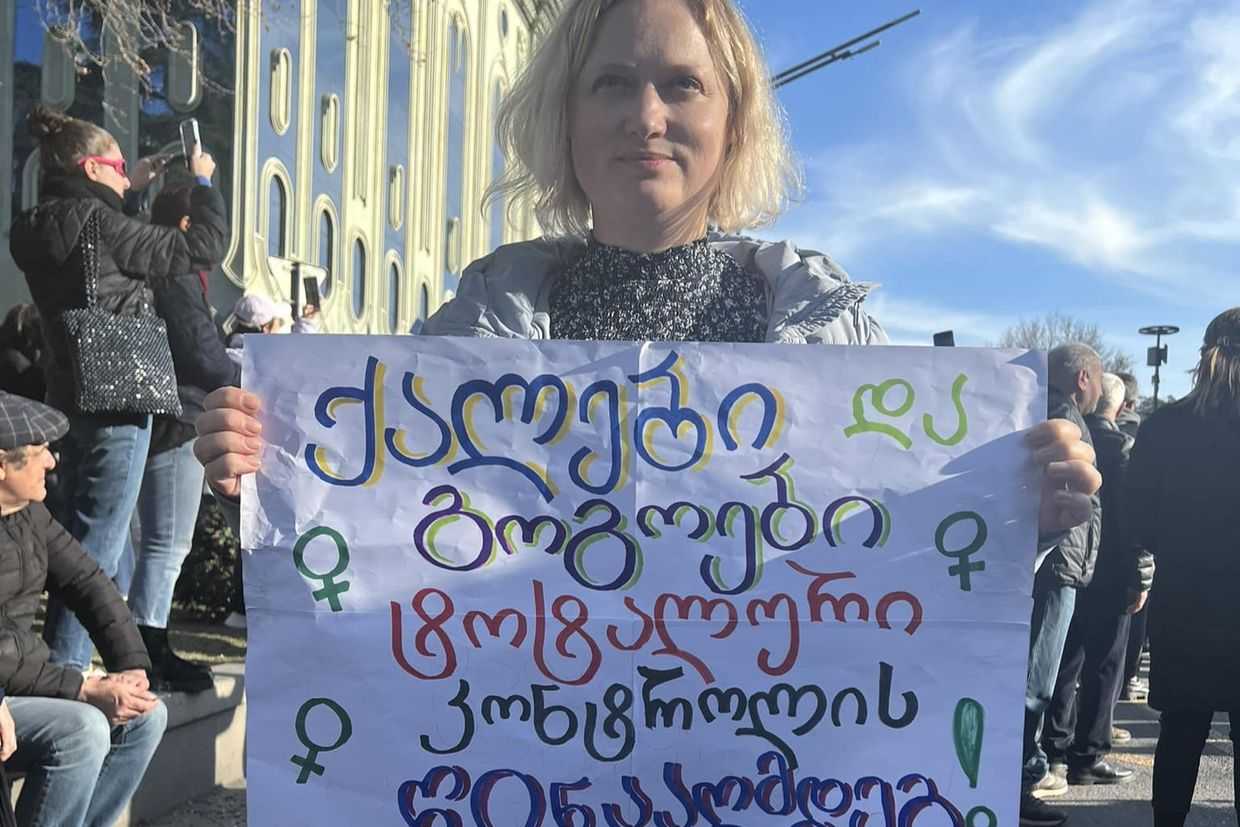 ქალები და
გოგოები
ტოტალური
კონტროლის
წინააღმდეგ!